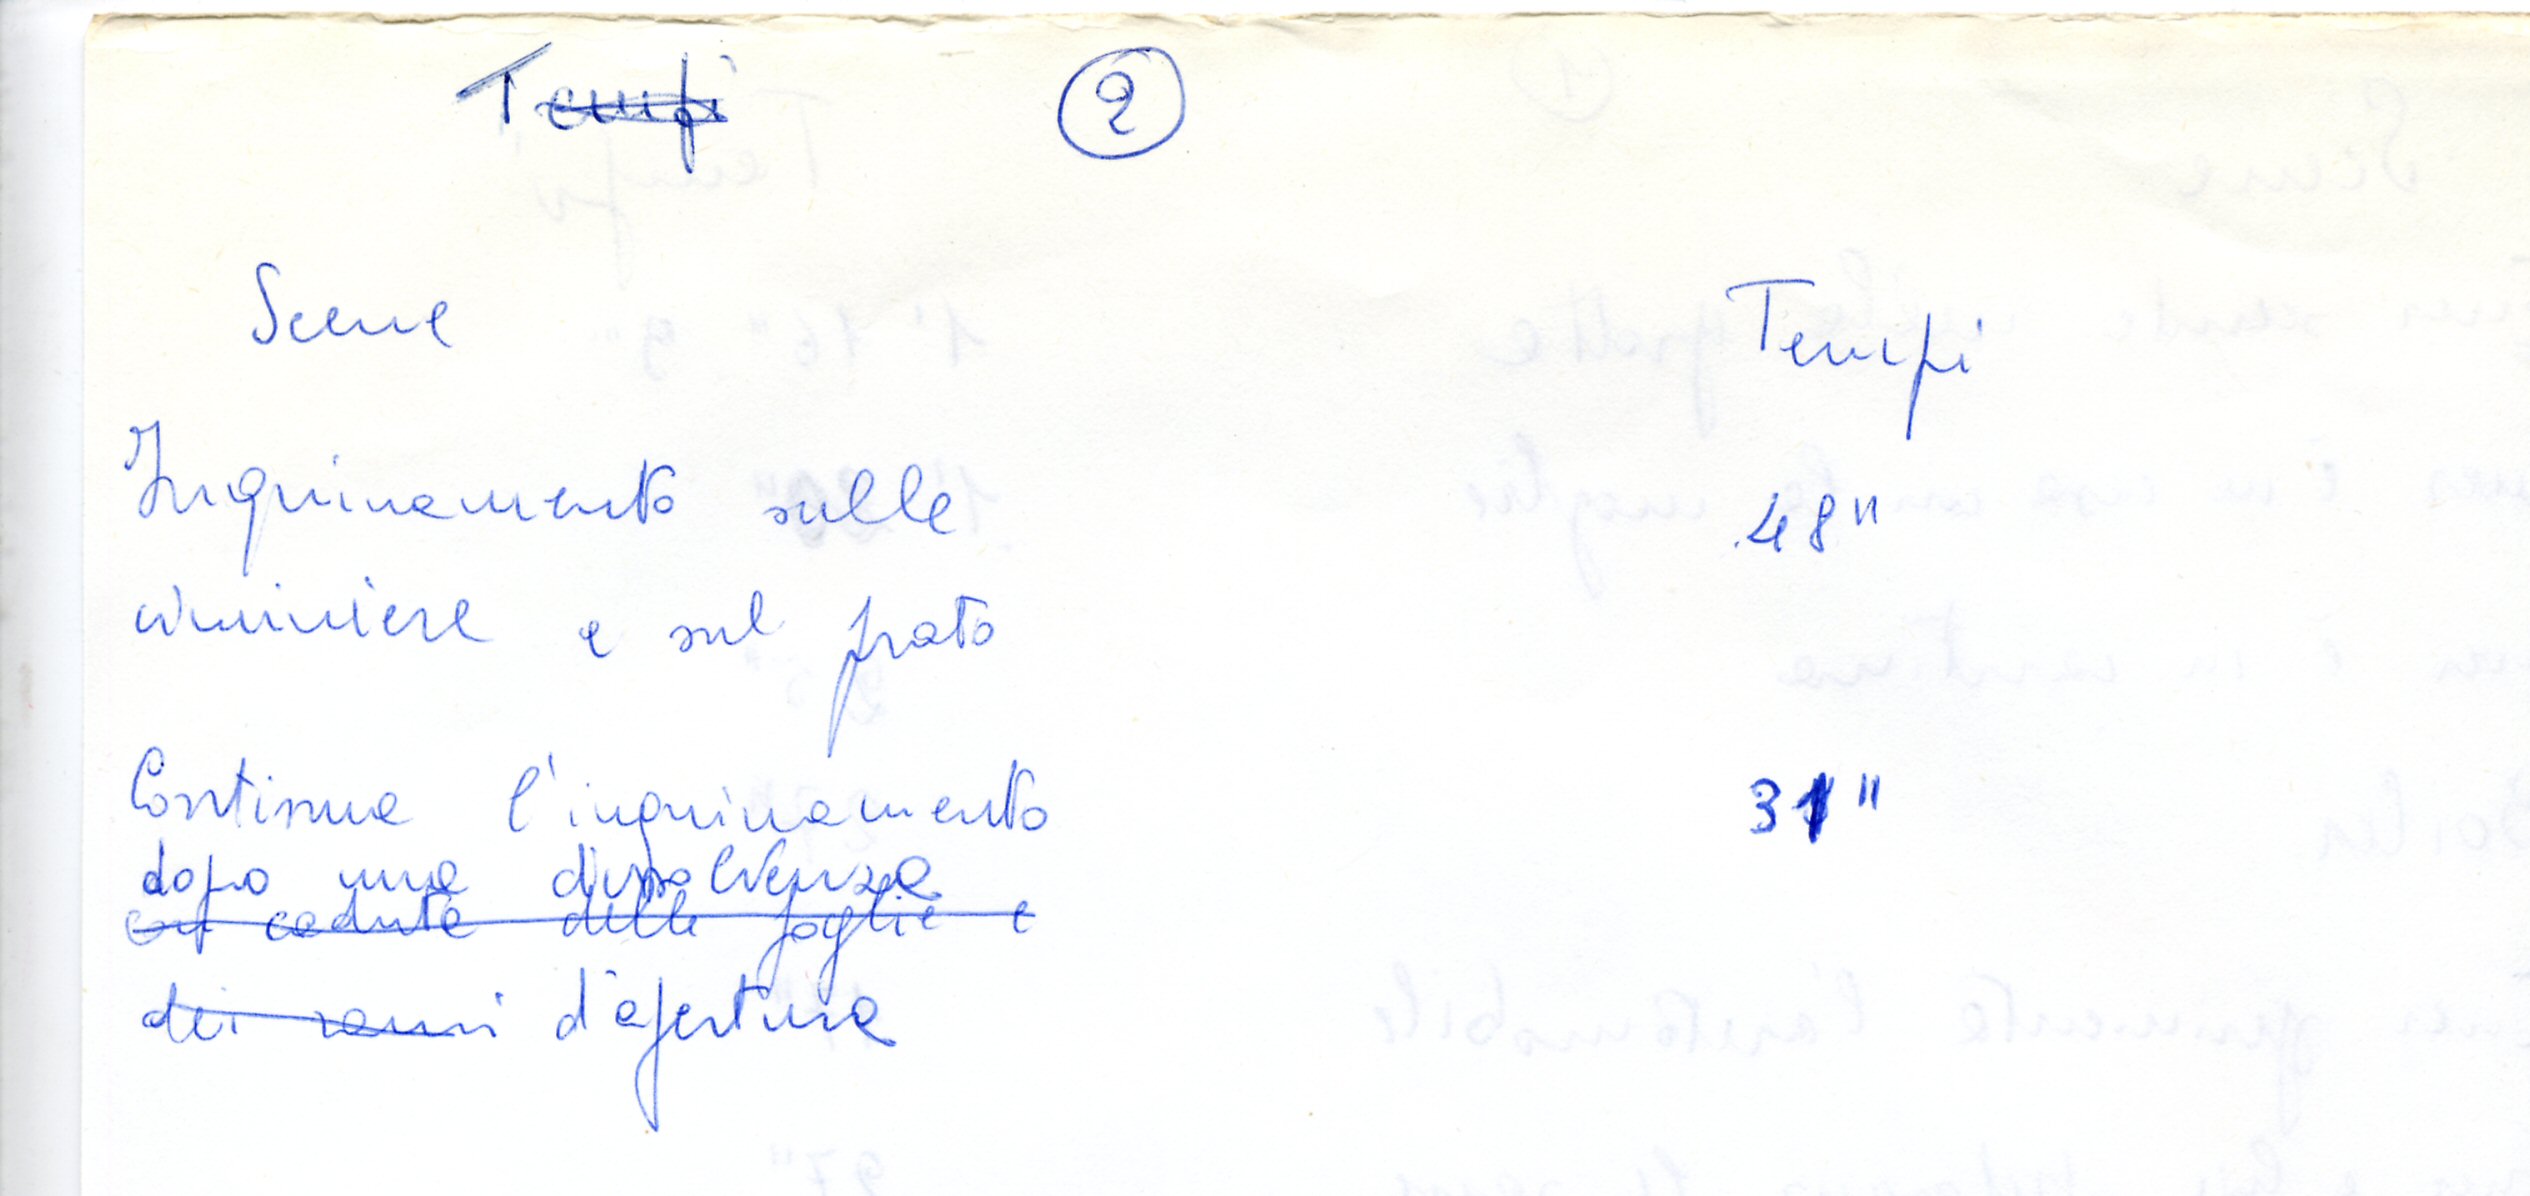 Tempi 2
Scene Tempi
Inquinamento sulle 48"
ciminiere e sul prato
Continua l'inquinamento 31"
dopo una dissolvenza
caduta delle foglie e
dei rami d'apertura